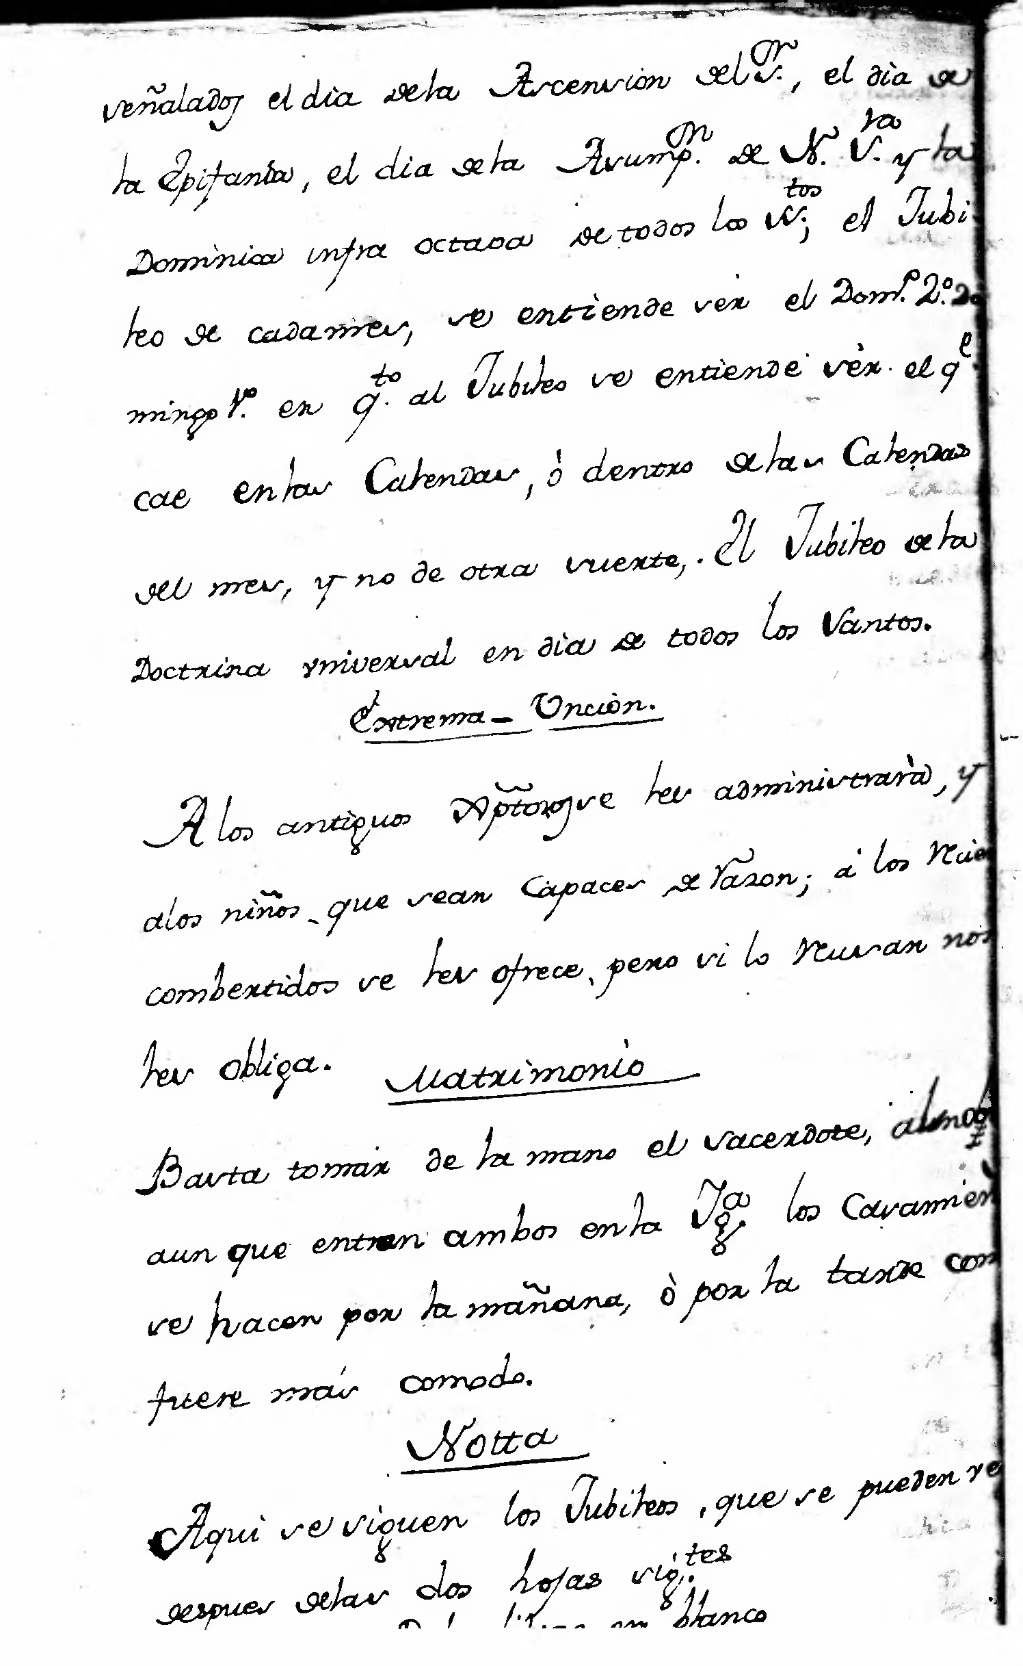 señalados el dia dela Ascension del Sr., el dia de
la Epifania, el dia dela Asumpn. de N. Sra. y la
Dominica infra octava de todos los Stos; el Jubi
leo de cada mes, se entiende ser el Domo. 2º. Do
mingo 1º. en qto. al Jubileo se entiende sèr el qe.
cae enlas Calendas, ò dentro delas Calendas
del mes, y no de otra suerte,. El Jubileo dela
Doctrina yniversal en dia de todos los Santos.
Extrema - Uncion.
A los antiguos se les administrarà, y
alos niños que sean Capaces de razon; á los recien
combertidos se les ofrece, pero si lo recusan nos
les obliga.
Matrimonio
Basta tomar de la mano el sacerdote,
aun que entren ambos enla Yga. los Casamien
se hacen por la mañana, ò por la tarde com
fuere más comodo.
Notta
Aqui se siguen los Jubileos, que se pueden ve
despues delas dos hojas sigtes
en blanco